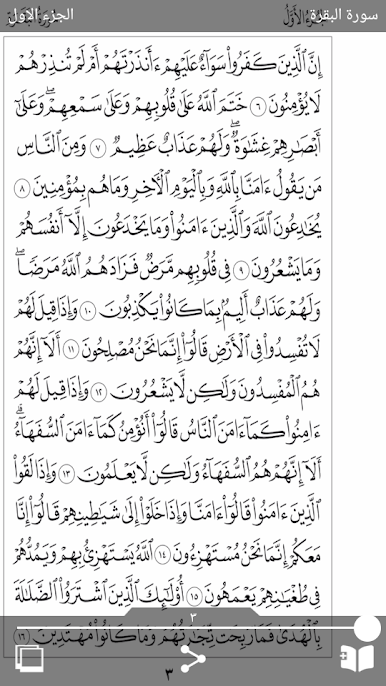 سورة البقرة
الجزء الاول
إِنَّ ٱلَّذِينَ كَفَرُواْ سَوَآءٌ عَلَيْهِمْ ءَأَنذَرْتَهُمْ أَمْ لَمْ تُنذِرْهُمْ
لَا يُؤْمِنُونَ ٦ خَتَمَ ٱللَّهُ عَلَىٰ قُلُوبِهِمْ وَعَلَىٰ سَمْعِهِمْۖ وَعَلَىٰٓ
أَبْصَٰرِهِمْ غِشَٰوَةٌۖ وَلَهُمْ عَذَابٌ عَظِيمٌ ٧ وَمِنَ ٱلنَّاسِ
مَن يَقُولُ ءَامَنَّا بِٱللَّهِ وَبِٱلْيَوْمِ ٱلْأٓخِرِ وَمَا هُم بِمُؤْمِنِينَ ٨
يُخَٰدِعُونَ ٱللَّهَ وَٱلَّذِينَ ءَامَنُواْ وَمَا يَخْدَعُونَ إِلَّآ أَنفُسَهُمْ
وَمَا يَشْعُرُونَ ٩ فِى قُلُوبِهِم مَّرَضٌ فَزَادَهُمُ ٱللَّهُ مَرَضًاۖ
وَلَهُمْ عَذَابٌ أَلِيمٌۢ بِمَا كَانُواْ يَكْذِبُونَ ١٠ وَإِذَا قِيلَ لَهُمْ
لَا تُفْسِدُواْ فِى ٱلْأَرْضِ قَالُوٓاْ إِنَّمَا نَحْنُ مُصْلِحُونَ ١١ أَلَآ إِنَّهُمْ
هُمُ ٱلْمُفْسِدُونَ وَلَٰكِن لَّا يَشْعُرُونَ ١٢ وَإِذَا قِيلَ لَهُمْ
ءَامِنُواْ كَمَآ ءَامَنَ ٱلنَّاسُ قَالُوٓاْ أَنُؤْمِنُ كَمَآ ءَامَنَ ٱلسُّفَهَآءُۗ
أَلَآ إِنَّهُمْ هُمُ ٱلسُّفَهَآءُ وَلَٰكِن لَّا يَعْلَمُونَ ١٣ وَإِذَا لَقُواْ
ٱلَّذِينَ ءَامَنُواْ قَالُوٓاْ ءَامَنَّا وَإِذَا خَلَوْاْ إِلَىٰ شَيَٰطِينِهِمْ قَالُوٓاْ إِنَّا
مَعَكُمْ إِنَّمَا نَحْنُ مُسْتَهْزِءُونَ ١٤ ٱللَّهُ يَسْتَهْزِئُ بِهِمْ وَيَمُدُّهُمْ
فِى طُغْيَٰنِهِمْ يَعْمَهُونَ ١٥ أُوْلَٰٓئِكَ ٱلَّذِينَ ٱشْتَرَوُاْ ٱلضَّلَٰلَةَ
بِٱلْهُدَىٰ فَمَا رَبِحَت تِّجَٰرَتُهُمْ وَمَا كَانُواْ مُهْتَدِينَ ١٦
٣
٣